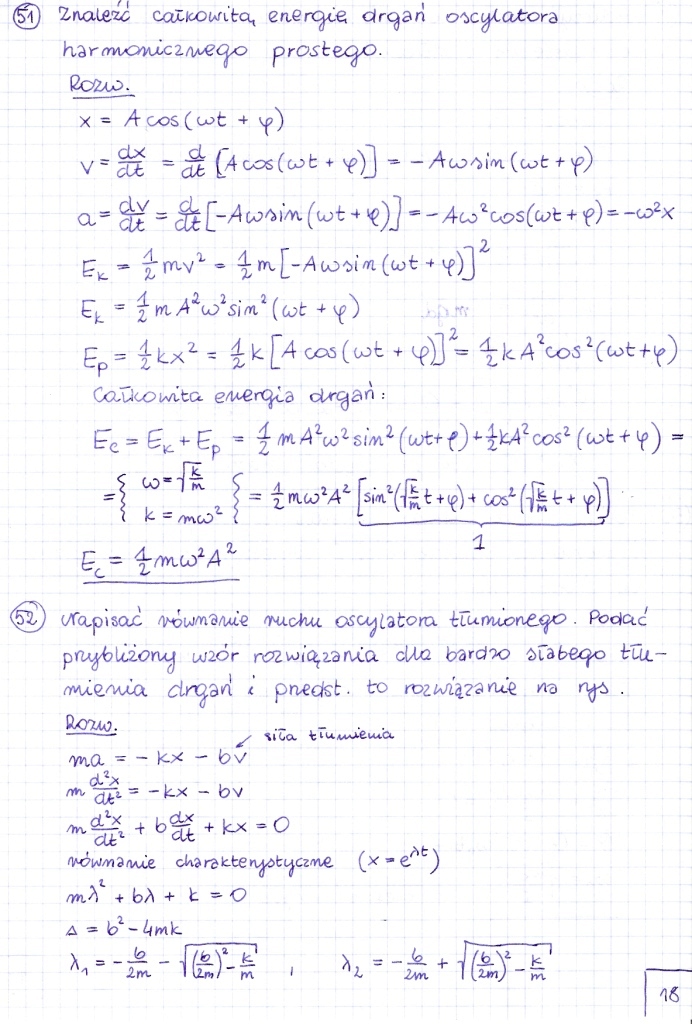 51 Znaleźć całkowitą energię drgań oscylatora
harmonicznego prostego.
Rozw.
x = A cos(ωt + φ)
v = dx/dt = d/dt [A cos(ωt + φ)] = - Aω sin(ωt + φ)
a = dv/dt = d/dt [-Aω sin(ωt + φ)] = - Aω² cos(ωt + φ) = -ω²x
E_k = 1/2 mv² = 1/2 m [-Aω sin(ωt + φ)]²
E_k = 1/2 m A²ω² sin²(ωt + φ)
E_p = 1/2 kx² = 1/2 k [A cos(ωt + φ)]² = 1/2 k A² cos²(ωt + φ)
Całkowita energia drgań:
E_c = E_k + E_p = 1/2 m A²ω² sin²(ωt + φ) + 1/2 kA² cos²(ωt + φ) =
= { ω = √(k/m) k = mω² } = 1/2 mω²A² [sin²(√(k/m) t + φ) + cos²(√(k/m) t + φ)]
1
E_c = 1/2 mω²A²
52 Napisać równanie ruchu oscylatora tłumionego. Podać
przybliżony wzór rozwiązania dla bardzo słabego tłu-
mienia drgań i przedst. to rozwiązanie na rys.
Rozw.
siła tłumienia
ma = - kx - bv
m d²x/dt² = - kx - bv
m d²x/dt² + b dx/dt + kx = 0
równanie charakterystyczne (x = e^λt)
mλ² + bλ + k = 0
Δ = b² - 4mk
λ₁ = - b/2m - √((b/2m)² - k/m) , λ₂ = - b/2m + √((b/2m)² - k/m)
18